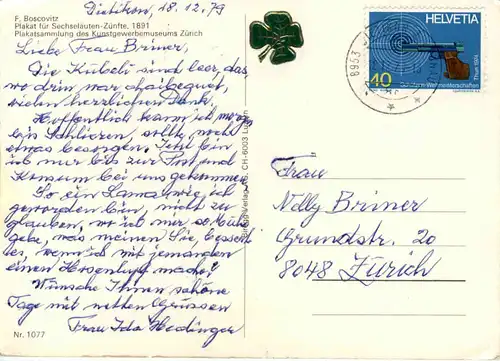 Dietikon, 18.12.79
F. Boscovitz
Plakat für Sechseläuten-Zünfte, 1891
Plakatsammlung des Kunstgewerbemuseums Zürich
Liebe Frau Briner,
Die Kübeli sind leer, das
wo drin war
vielen herzlichen Dank.
Hoffentlich kann ich morgen
in Schlieren, sollte noch
etwas besorgen. Jetzt bin
ich nur bis zur Post und
Konsum bei uns gekommen
So ein Lama wie ich
geworden bin, nicht zu
glauben, wo ich mir so Mühe
gebe, was meinen Sie, bessert
es, wenn ich mit jemandem
einen Hosenlupf mache?
Wünsche Ihnen schöne
Tage mit netten Grüssen
Frau Ida Hedinger
Nr. 1077
Verlag AG, CH-6003 Luzern
HELVETIA
40
8953
Frau
Nelly Briner
Grundstr. 20
8048 Zürich